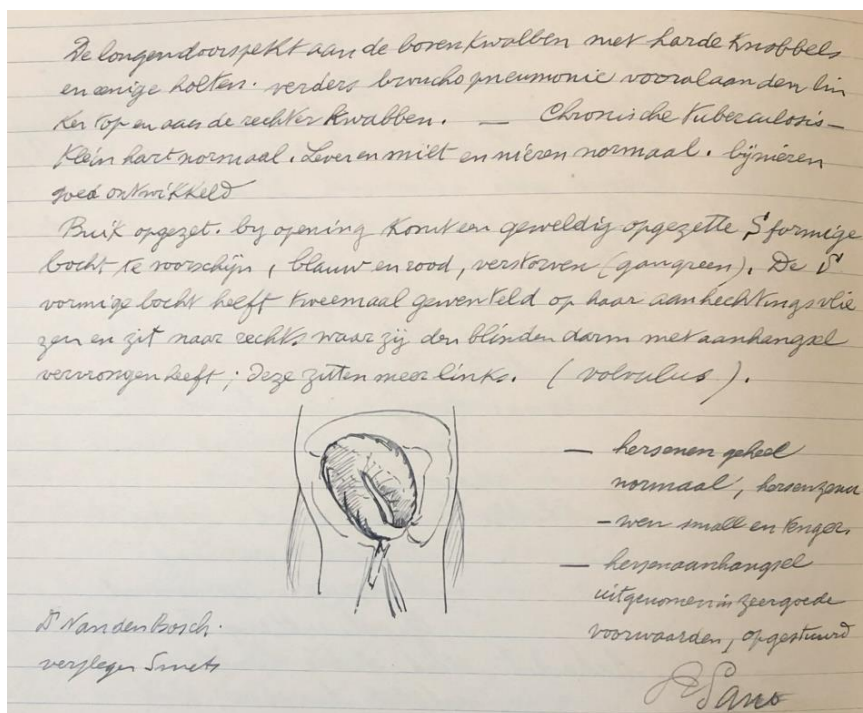 De longen doorspekt aan de bovenkwabben met harde knobbels
en eenige holten. verders bronchopneumonie vooral aan den lin
ker top en aan de rechter kwabben. — Chronische tuberculosis —
Klein hart normaal. Lever en milt en nieren normaal. bijnieren
goed ontwikkeld
Buik opgezet. by opening komt een geweldig opgezette S formige
bocht te voorschijn, blauw en rood, verstorven (gangreen). De S
vormige bocht heeft tweemaal gewenteld op haar aanhechtingsvlie
zen en zit naar rechts waar zij den blinden darm met aanhangsel
verwrongen heeft; deze zitten meer links. (volvulus).
— hersenen geheel
normaal, hersenzenu
-wen small en tenger.
— hersenaanhangsel
uitgenomen in zeer goede
voorwaarden, opgestuurd
Dr Vanden Bosch.
verpleger Smets
Sano